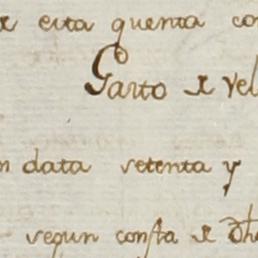 de esta quenta con
Garto de vel
n data setenta y
segun consta de dh